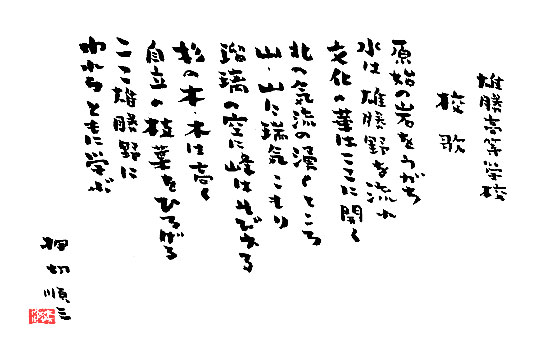 雄勝高等学校
校歌
原始の岩をうがち
水は雄勝野を流れ
文化の華はここに開く
北の気流の湧くところ
山・山に瑞気こもり
瑠璃の空に峰はそびゆる
杉の木・木は高く
自立の枝葉をひろげる
ここ雄勝野に
われらともに学ぶ
押切順三